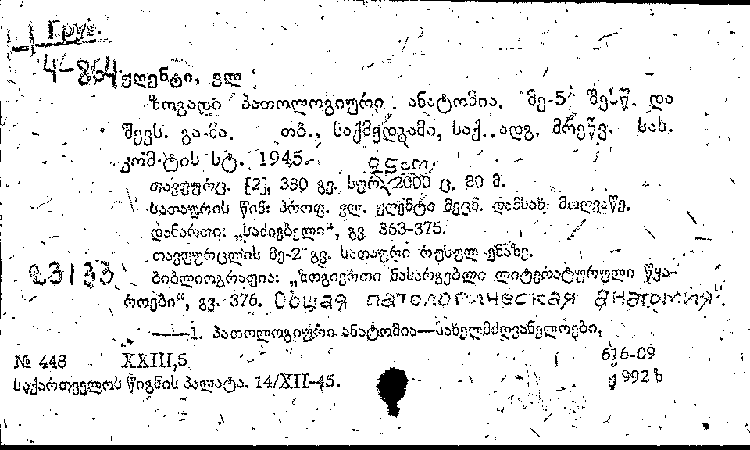 Груз.
4-864
ჟღენტი, ვლ.
ზოგადი პათოლოგიური ანატომია. მე-5 შესწ. და
შევს. გა-მა. თბ., საქმედგამი, საქ. ადგ. მრეწვ. სახ.
კომ-ტის სტ. 1945.
თავფურც. [2], 380 გვ. სურ. 2000 ც. 80 მ.
სათაურის წინ: პროფ. ვლ. ჟღენტი მეცნ. დამსახ. მოღვაწე.
დანართი: „საძიებელი", გვ. 363-375.
თავფურცლის მე-2 გვ. სათაური რუსულ ენაზე.
23133
ბიბლიოგრაფია: „ზოგიერთი მასარგებლი ლიტერატურული წყა-
როები", გვ. 376. Общая патологическая анатомия
1. პათოლოგიური ანატომია—სახელმძღვანელოები,
№ 448 XXIII,5 616-09
საქართველოს წიგნის პალატა. 14/XII-45. ჟ 992 ზ